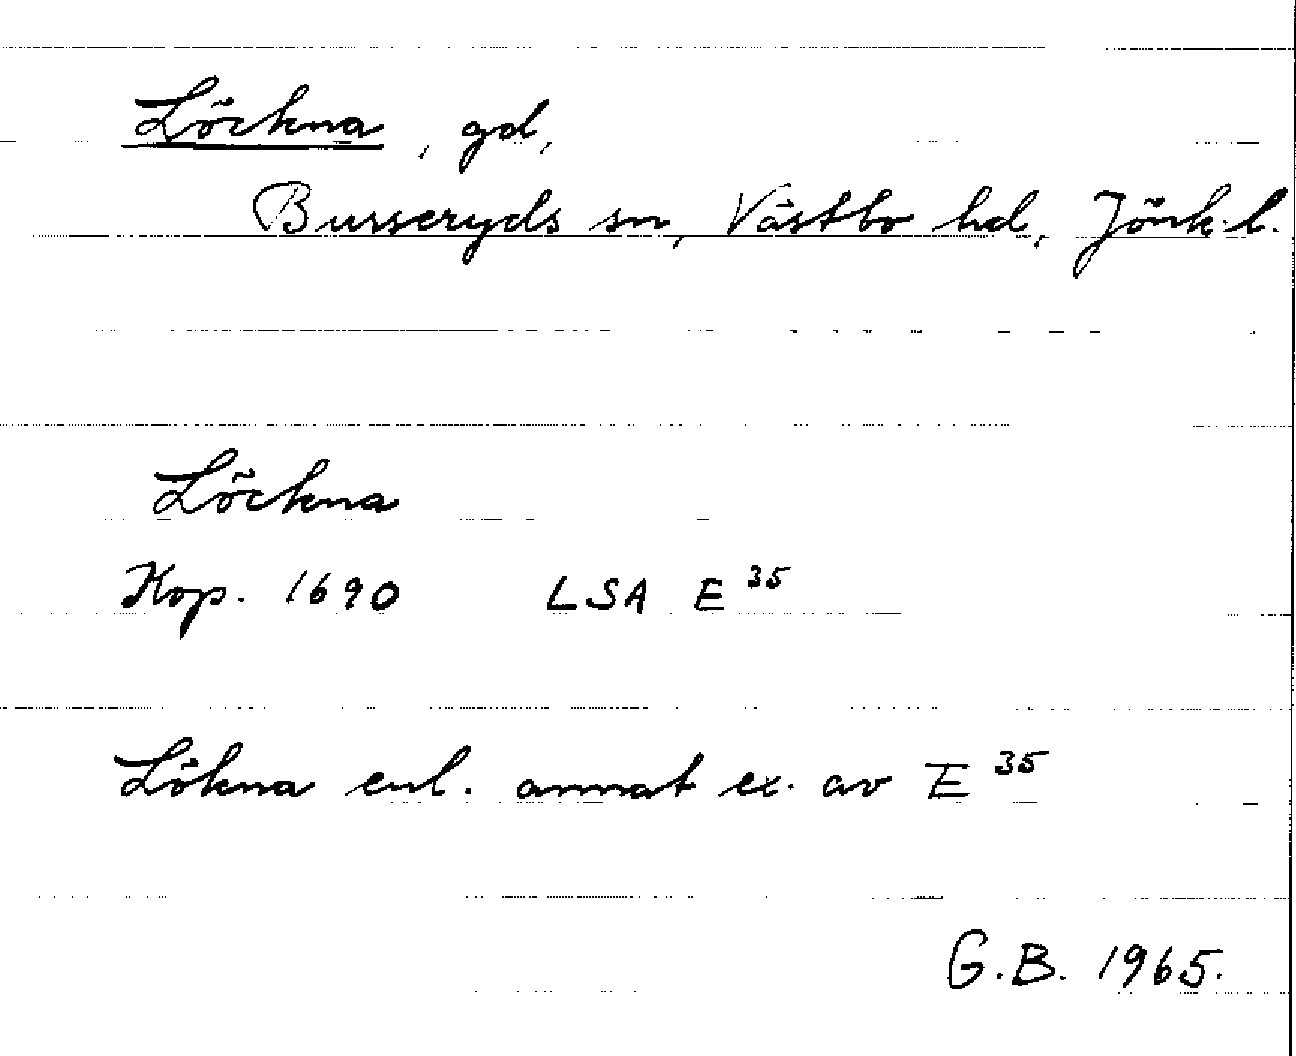 Löckna, gd,
Burseryds sn, Västbo hd, Jönk.l.
Löckna
Kop. 1690 LSA E 35
Lökna enl. annat ex. av E 35
G.B. 1965.